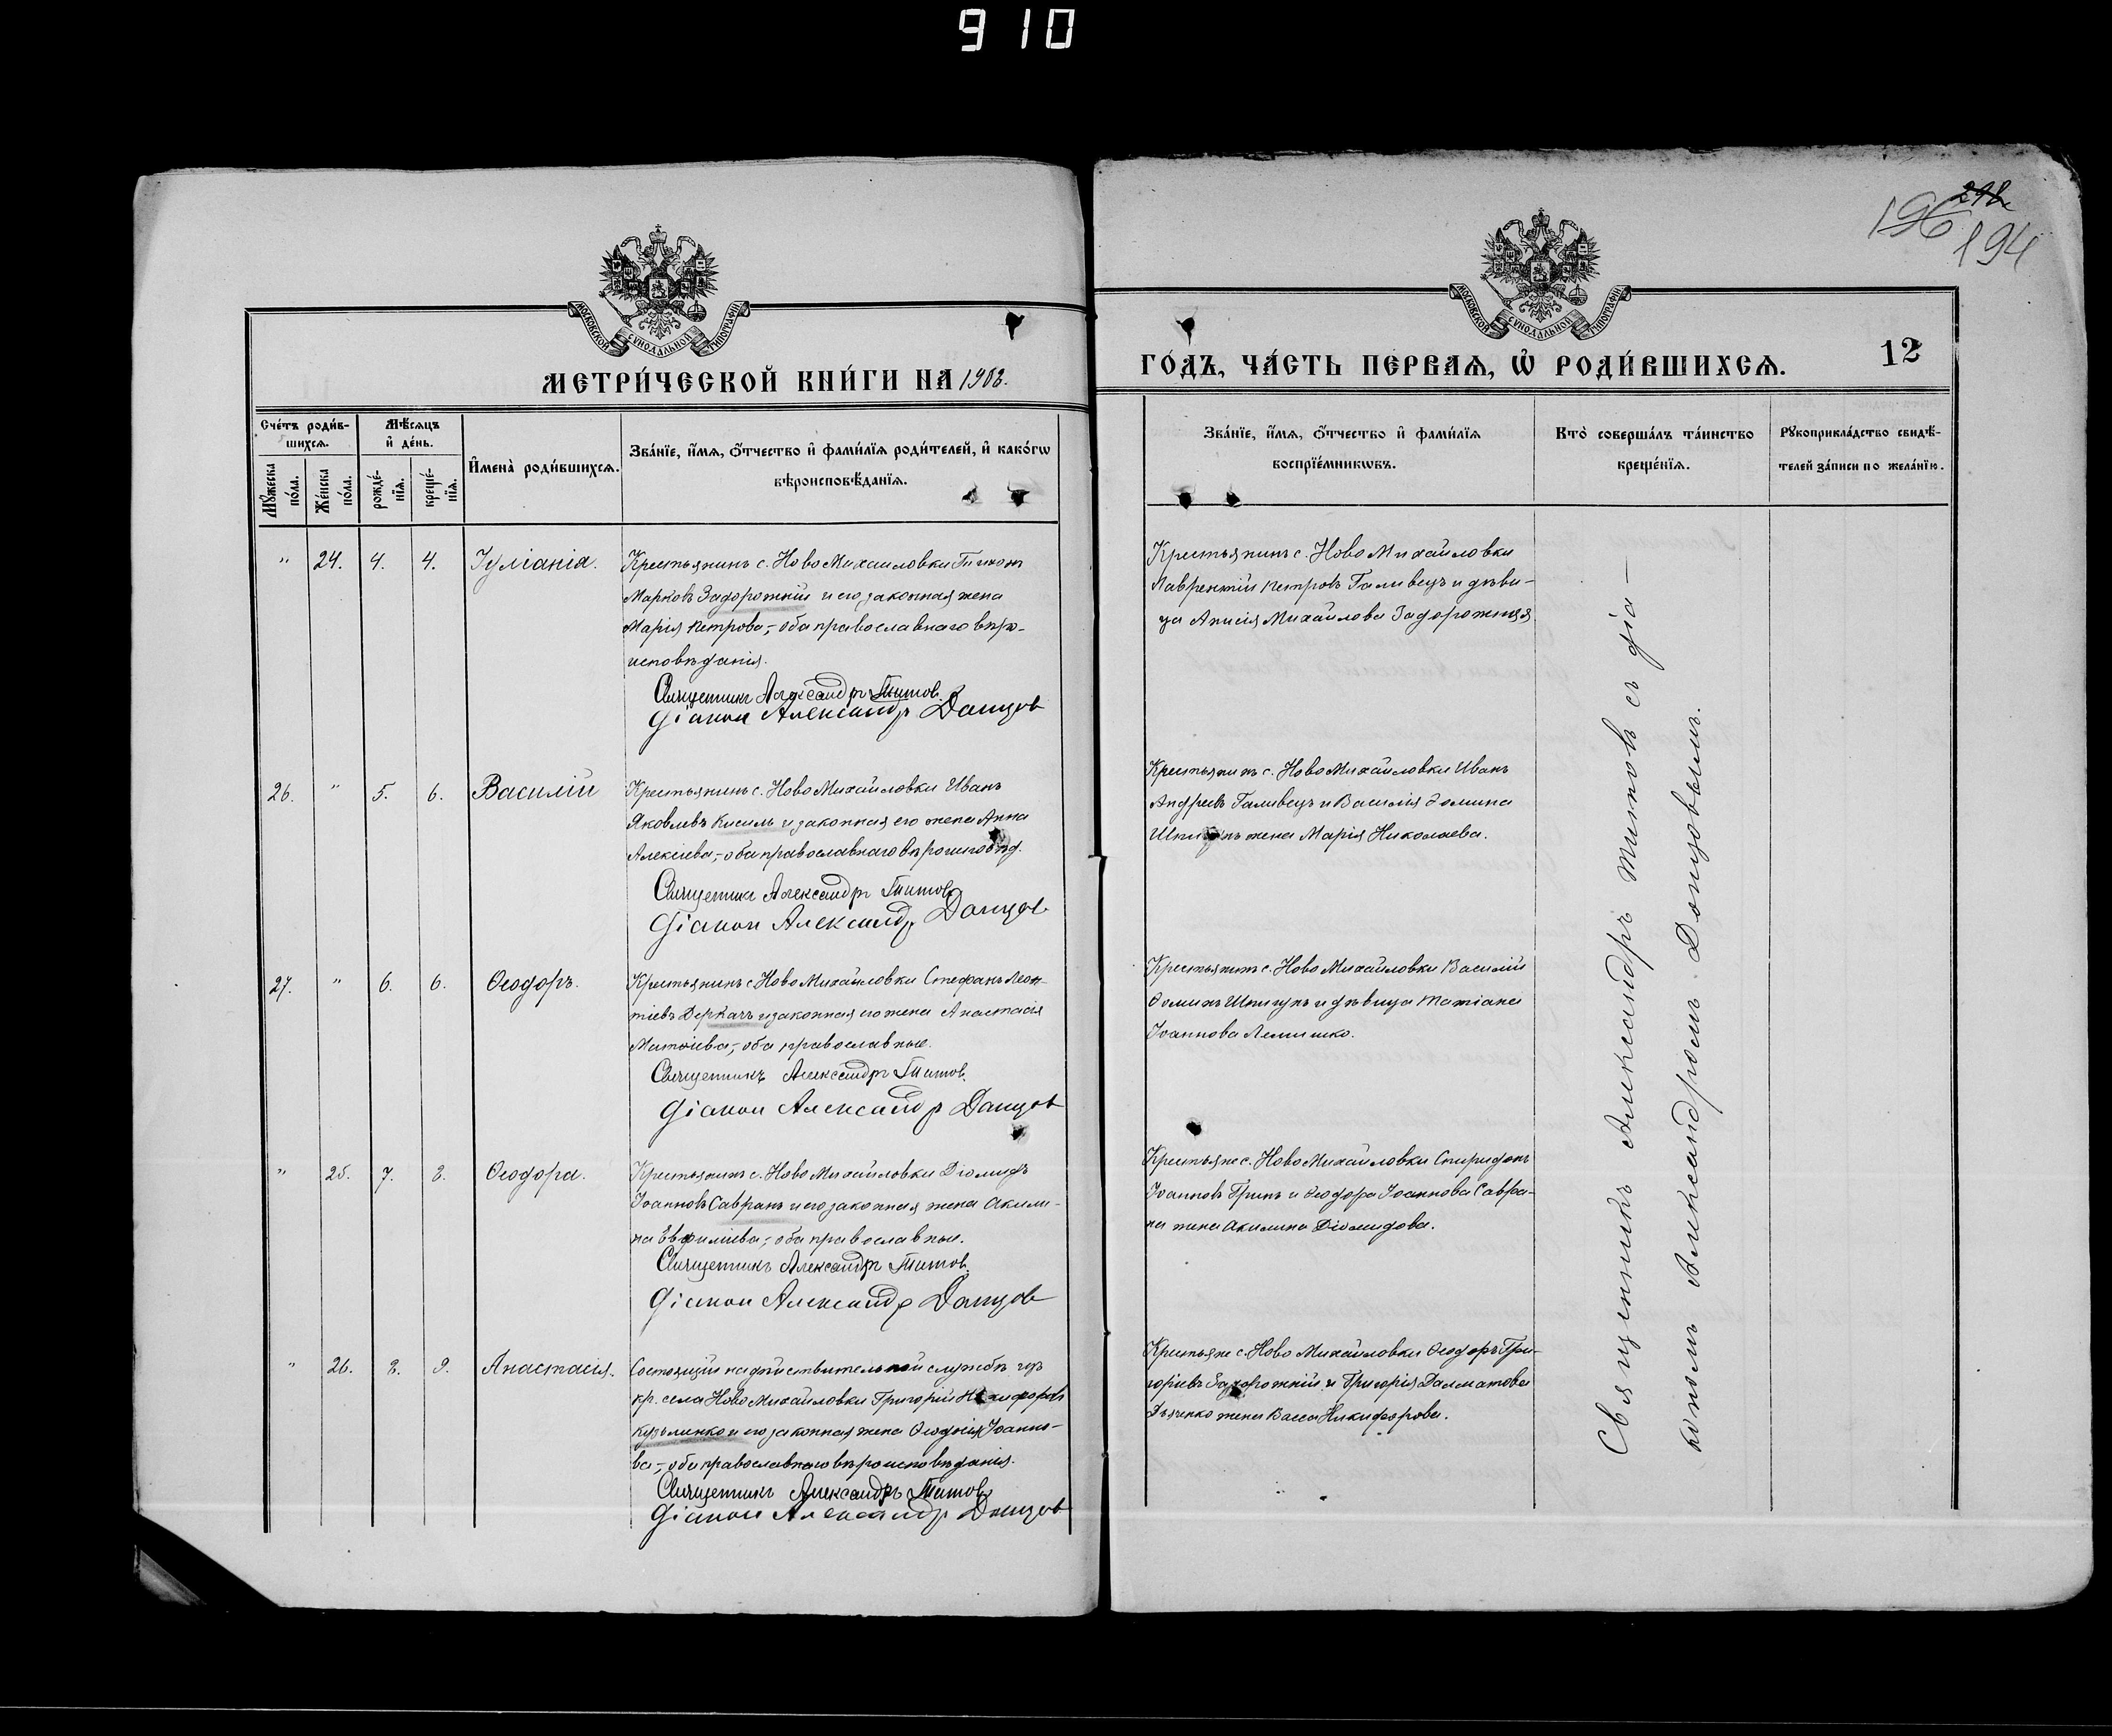 910
218
196
194
МОСКОВСКОЙ СѴНОДАЛЬНОЙ ТИПОГРАФІИ
МОСКОВСКОЙ СѴНОДАЛЬНОЙ ТИПОГРАФІИ
МЕТРИ́ЧЕСКОЙ КНИ́ГИ НА 1902.
ГО́ДЪ, ЧА́СТЬ ПЕ́РВАѦ, Ѽ РОДИ́ВШИХСѦ.
12
Сче́тъ роди́в-
шихсѧ.
Мꙋ́жеска по́ла.
Же́нска по́ла.
Мѣ́сѧцъ
и҆ де́нь.
рожде́-
нїѧ.
креще́-
нїѧ.
И҆мена̀ роди́вшихсѧ.
Зва́нїе, и҆́мѧ, ѻ҆́тчество и҆ фами́лїѧ роди́телей, и҆ како́гѡ
вѣроисповѣ́данїѧ.
Зва́нїе, и҆́мѧ, ѻ҆́тчество и҆ фами́лїѧ
воспрїе́мникѡвъ.
Кто̀ соверша́лъ та́инство
креще́нїѧ.
Рꙋкоприкла́дство свидѣ́-
телей за́писи по жела́нїю.
" 24. 4. 4. Іуліанія.
Крестьянинъ с. Ново Михайловки Тихонъ
Марковъ Задорожній и его законная жена
Марія Петрова,- оба православнаго веро-
исповѣданія.
Священникъ Александръ Титов.
Діакон Александр Донцов
Крестьянинъ с. Ново Михайловки
Лаврентій Петровъ Галивецъ и дѣви-
ца Анисія Михайлова Задорожняя
26. " 5. 6. Василій
Крестьянинъ с. Ново Михайловки Иванъ
Яковлевъ Кисиль и законная его жена Анна
Алексіева,- оба православнаго вѣроисповѣд.
Священникъ Александръ Титов.
Діакон Александр Донцов
Крестьянинъ с. Ново Михайловки Иванъ
Андреевъ Галивецъ и Василія Ѳомина
жена Марія Николаева.
27. " 6. 6. Ѳеодоръ.
Крестьянинъ с. Ново Михайловки Стефанъ Леон-
тіевъ Деркачъ и законная его жена Анастасія
Матѳіева,- оба православные.
Священникъ Александръ Титов.
Діакон Александр Донцов
Крестьянинъ с. Ново Михайловки Василій
Ѳоминъ Шпигунъ и дѣвица Татіана
Іоаннова Лемишко.
" 25. 7. 8. Ѳеодора.
Крестьянинъ с. Ново Михайловки Діомидъ
Іоанновъ Савранъ и его законная жена Акили-
на Евфиміева,- оба православные.
Священникъ Александръ Титов.
Діакон Александр Донцов
Крестьяне с. Ново Михайловки Спиридонъ
Іоанновъ Гринь и Ѳеодора Іоаннова Савра-
на жена Акилина Діомидова.
" 26. 8. 9. Анастасія.
Состоящій на дѣйствительной службѣ изъ
кр. села Ново Михайловки Григорій Никифоровъ
Кузьминко и его законная жена Ѳеодосія Іоанно-
ва,- оба православнаго вѣроисповѣданія.
Священникъ Александръ Титов.
Діакон Александр Донцов
Крестьяне с. Ново Михайловки Ѳеодоръ Гри-
горіевъ Задорожній и Григорія Далматова
Дьяченко жена Васса Никифорова.
Священникъ Александръ Титовъ съ діа-
кономъ Александромъ Донцовымъ.